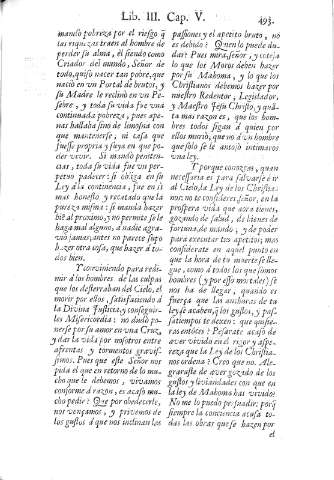 Lib. III. Cap. V.
493.
mando pobreza por el riesgo q̃
las riquezas traen al hombre de
perder su alma, él siendo como
Criador del mundo, Señor de
todo, quiso nacer tan pobre, que
nació en un Portal de brutos, y
su Madre le reclinó en un Pe-
sebre, y toda su vida fue vna
continuada pobreza, pues ape-
nas hallaba sinó de limosna con
que mantenerse, ni casa que
fuesse propria y suya en que po-
der vivir. Si mandó peniten-
cias, toda su vida fue un per-
petuo padecer: si obliga en su
Ley a la continencia, fue en sí
mas honesto y recatado que la
pureza misma: si manda hazer
bié al proximo, y no permite se le
haga mal alguno, á nadie agra-
vió jamàs, antes no parece supo
hazer otra cosa, que hazer á to-
dos bien.
Y conviniendo para redi-
mir à los hombres de las culpas
que los desterraban del Cielo, el
morir por ellos, satisfaciendo à
la Divina Justicia, y conseguir-
les Misericordia: no dudò po-
nerse por su amor en vna Cruz,
y dar la vida por nosotros entre
afrentas y tormentos gravis-
simos. Pues que este Señor nos
pida el que en retorno de lo mu-
cho que le debemos, vivamos
conforme á razon, es acaso mu-
cho pedir? Que por obedecerle,
nos vençamos, y privemos de
los gustos à que nos inclinan las
passiones y el apetito bruto, no
es debido? Quien lo puede du-
dar? Pues mira, señor, y coteja
lo que los Moros deben hazer
por su Mahoma, y lo que los
Christianos debemos hazer por
nuestro Redentor, Legislador,
y Maestro Jesu Christo, y quã-
ta mas razon es, que los hom-
bres todos sigan à quien por
ellos murió, que no à un hombre
que solo se le antojò intimaros
vna ley.
Y porque conozcas, quan
necessaria es para salvarse é ir
al Cielo, la Ley de los Christia-
nos; no te consideres, señor, en la
prospera vida que aora tienes,
gozando de salud, de bienes de
fortuna, de mando, y de poder
para executar tus apetitos; mas
considerate en aquel punto en
que la hora de tu muerte se lle-
gue, como á todos los que somos
hombres (y por esso mortales) se
nos ha de llegar, quando es
fuerça que las anchuras de tu
ley se acaben, q̃ los gustos, y pas-
satiempos te dexen: que quisie-
ras entónces? Pesarate acaso de
aver vivido en el rigor y aspe-
reza que la Ley de los Christia-
nos ordena? Creo que no. Ale-
graraste de aver gozado de los
gustos y liviandades con que en
la ley de Mahoma has vivido?
No me lo puedo persuadir; porq̃
siempre la conciencia acusa to-
das las obras que se hazen por
el